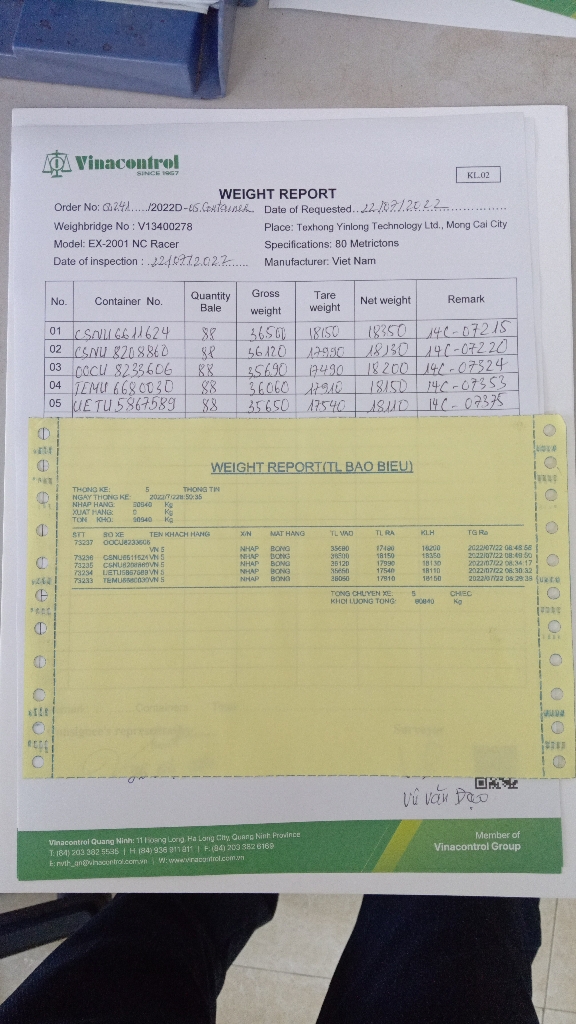 Vinacontrol
SINCE 1957
KL.02
WEIGHT REPORT
Order No: /2022D-05 Container Date of Requested 22/07/2022
Weighbridge No : V13400278 Place: Texhong Yinlong Technology Ltd., Mong Cai City
Model: EX-2001 NC Racer Specifications: 80 Metrictons
Date of inspection : 22/07/2022 Manufacturer: Viet Nam
No. Container No. Quantity Bale Gross weight Tare weight Net weight Remark
01 CSNU 6611624 88 36500 18150 18350 14C-07215
02 CSNU 8208860 88 36120 17990 18130 14C-07220
03 OOCU 8233606 88 35690 17490 18200 14C-07324
04 TEMU 6680030 88 36060 17910 18150 14C-07353
05 UETU 5867589 88 35650 17540 18110 14C-07375
WEIGHT REPORT(TL BAO BIEU)
THONG KE: 5 THONG TIN
NGAY THONG KE:
NHAP HANG: 90940 Kg
XUAT HANG: 0 Kg
TON KHO: 90940 Kg
STT SO XE TEN KHACH HANG X/N MAT HANG TL VAO TL RA KLH TG Ra
73237 OOCU8233606
VN 5 NHAP BONG 35690 17490 18200 2022/07/22
73236 CSNU6611624VN 5 NHAP BONG 36500 18150 18350 2022/07/22
73235 CSNU8208860VN 5 NHAP BONG 36120 17990 18130 2022/07/22
73234 UETU5867589VN 5 NHAP BONG 35650 17540 18110 2022/07/22
73233 TEMU6680030VN 5 NHAP BONG 36060 17910 18150 2022/07/22
TONG CHUYEN XE: 5 CHIEC
KHOI LUONG TONG: 90940 Kg
Vũ Văn Đạo
Vinacontrol Quang Ninh: 11 Hoang Long, Ha Long City, Quang Ninh Province
T: (84) 203 382 5535 | H: (84) 936 911 811 | F: (84) 203 382 6169
E: nvth_qn@vinacontrol.com.vn | W: www.vinacontrol.com.vn
Member of
Vinacontrol Group